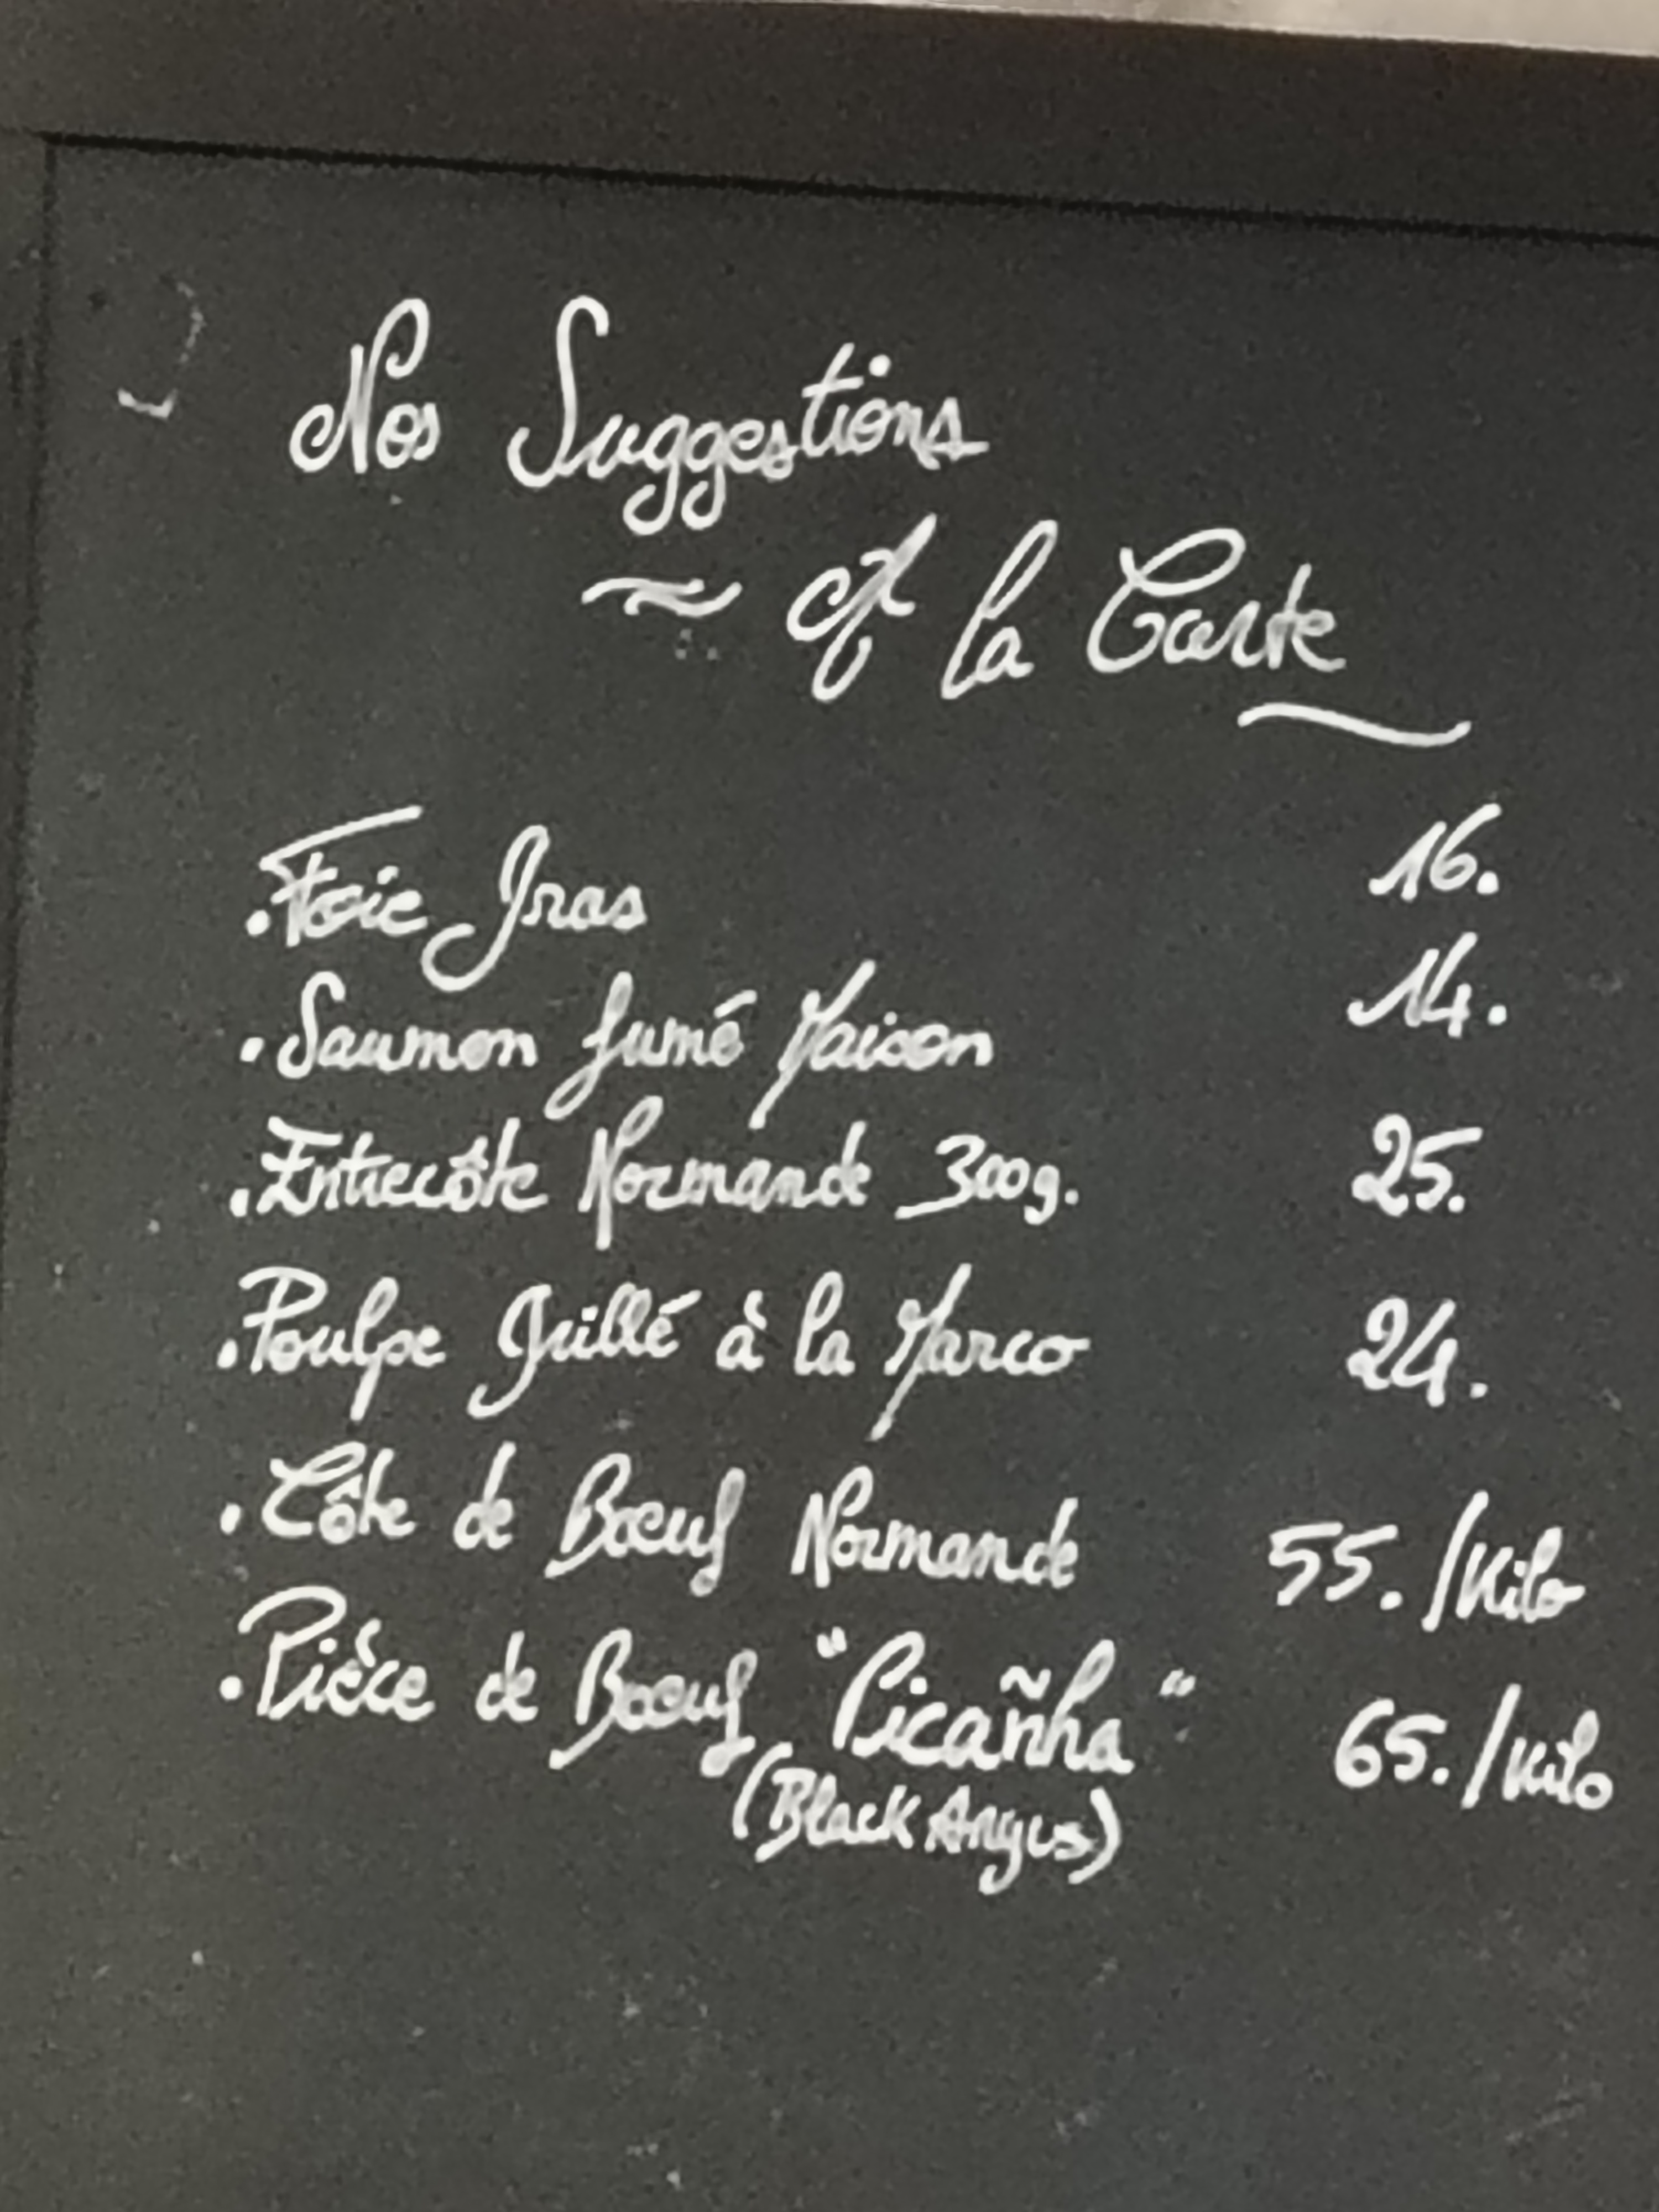 Nos Suggestions
~ A la Carte
.Foie Gras 16.
.Saumon fumé Maison 14.
.Entrecôte Normande 300g. 25.
.Poulpe Grillé à la Marco 24.
.Côte de Bœuf Normande 55./Kilo
.Pièce de Bœuf "Picañha" 65./Kilo
(Black Angus)